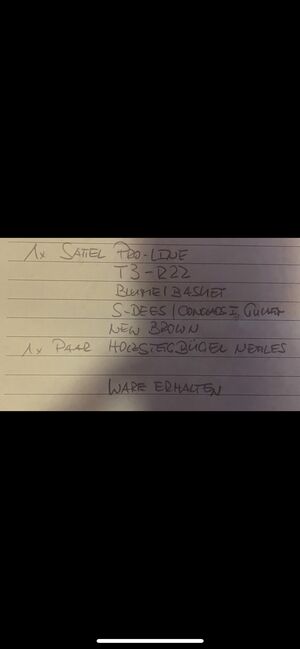 1x SATTEL PRO-LINE
T3-R22
BLUME/BASKET
S-DEES/CONCHOS I,
NEW BROWN
1x PAAR HOLZSTEIGBÜGEL
WARE ERHALTEN